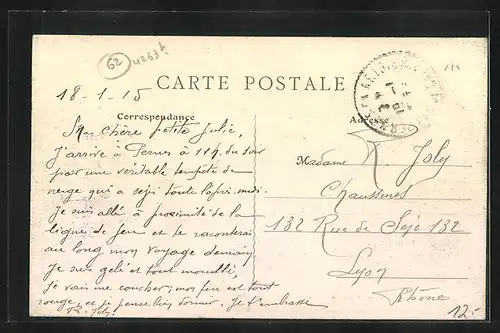 62
42634
CARTE POSTALE
18-1-15
Correspondance
Ma chère petite Julie,
J'arrive à Pernes à 11h. du soir
par une véritable tempête de
neige qui a sévi toute l'après-midi.
Je suis allé à proximité de la
ligne de feu et te raconterai
au long mon voyage demain
Je suis gelé et tout mouillé,
je vais me coucher, mon feu est tout
rouge, et je pense bien dormir. Je t'embrasse
R. Joly.
Adresse
Madame R. Joly
Chaussures
132 Rue de Sèze 132
Lyon
Rhône
12.-